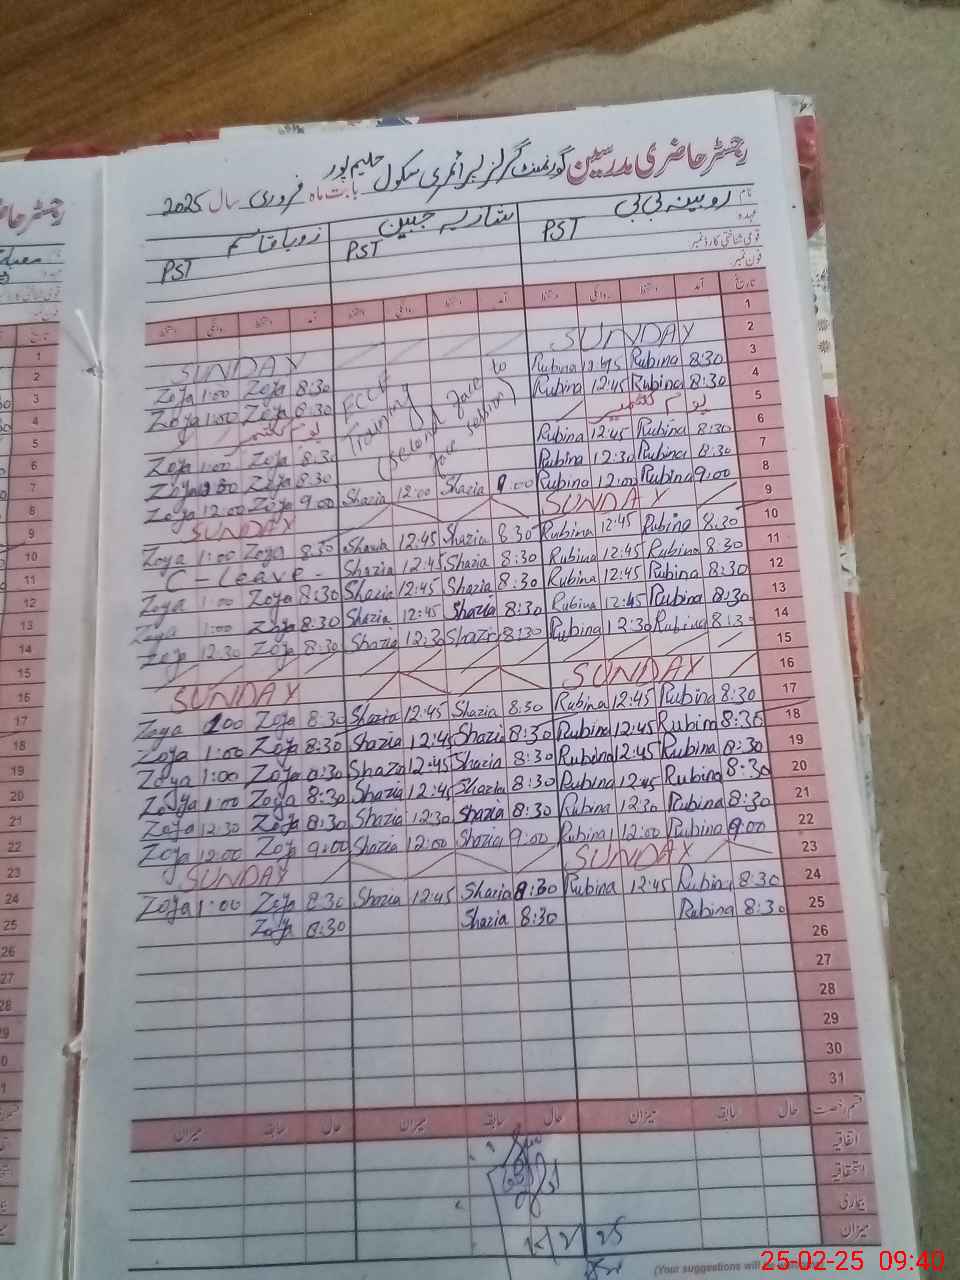 رجسٹر حاضری مدرسین گورنمنٹ گرلز پرائمری سکول حلیم پور بابت ماہ فروری سال 2025
نام روبینہ بی بی شازیہ جبین زوبا قاسم
عہدہ PST PST PST
قومی شناختی کارڈ نمبر
فون نمبر
تاریخ آمد دستخط روانگی دستخط آمد دستخط روانگی دستخط آمد دستخط روانگی دستخط
1
SUNDAY SUNDAY 2
Zoja 1:00 Zoja 8:30 Rubina 12:45 Rubina 8:30 3
Zoja 1:00 Zoja 8:30 Rubina 12:45 Rubina 8:30 4
یوم کشمیر یوم کشمیر 5
ECCE Training (second face to face session)
Zoja 1:00 Zoja 8:30 Rubina 12:45 Rubina 8:30 6
Zoja Zoja 8:30 Rubina 12:30 Rubina 8:30 7
Zoja 12:00 Zoja 9:00 Shazia 12:00 Shazia 9:00 Rubina 12:00 Rubina 9:00 8
SUNDAY SUNDAY 9
Zoya 1:00 Zoya 8:30 Shazia 12:45 Shazia 8:30 Rubina 12:45 Rubina 8:30 10
C-Leave- Shazia 12:45 Shazia 8:30 Rubina 12:45 Rubina 8:30 11
Zoya 1:00 Zoja 8:30 Shazia 12:45 Shazia 8:30 Rubina 12:45 Rubina 8:30 12
Zoya 1:00 Zoja 8:30 Shazia 12:45 Shazia 8:30 Rubina 12:45 Rubina 8:30 13
Zoja 12:30 Zoja 8:30 Shazia 12:30 Shazia 8:30 Rubina 12:30 Rubina 8:30 14
15
SUNDAY SUNDAY 16
Zoya 1:00 Zoja 8:30 Shazia 12:45 Shazia 8:30 Rubina 12:45 Rubina 8:30 17
Zoja 1:00 Zoja 8:30 Shazia 12:45 Shazia 8:30 Rubina 12:45 Rubina 8:30 18
Zoya 1:00 Zoja 8:30 Shazia 12:45 Shazia 8:30 Rubina 12:45 Rubina 8:30 19
Zoya 1:00 Zoja 8:30 Shazia 12:45 Shazia 8:30 Rubina 12:45 Rubina 8:30 20
Zoja 12:30 Zoja 8:30 Shazia 12:30 Shazia 8:30 Rubina 12:30 Rubina 8:30 21
Zoja 12:00 Zoja 9:00 Shazia 12:00 Shazia 9:00 Rubina 12:00 Rubina 9:00 22
SUNDAY SUNDAY 23
Zoja 1:00 Zoja 8:30 Shazia 12:45 Shazia 8:30 Rubina 12:45 Rubina 8:30 24
Zoja 8:30 Shazia 8:30 Rubina 8:30 25
26
27
28
29
30
31
قسم رخصت حال سابقہ میزان حال سابقہ میزان حال سابقہ میزان
اتفاقیہ
استحقاقیہ
بیماری
میزان
(Your suggestions will be
25-02-25 09:40